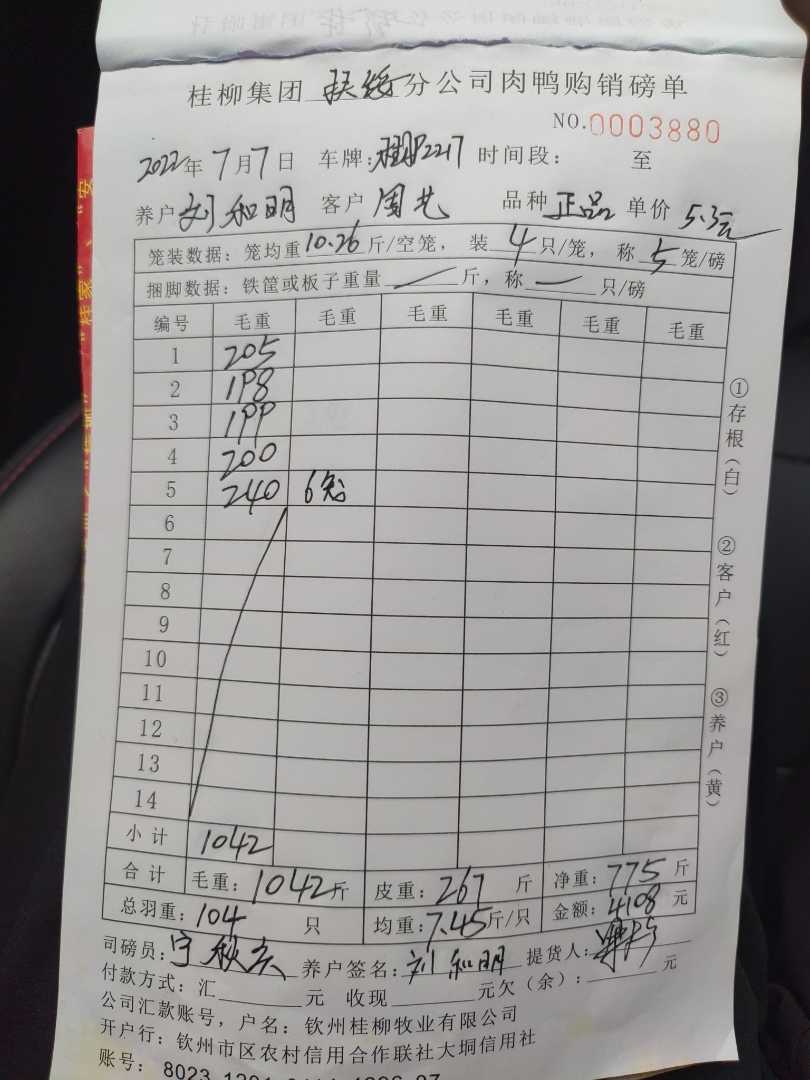 桂柳集团 扶绥 分公司肉鸭购销磅单
NO.0003880
2022年7月7日 车牌: 2217 时间段: 至
养户 刘和明 客户 周艺 品种 正品 单价 5.3元
笼装数据: 笼均重10.26斤/空笼, 装4只/笼, 称5笼/磅
捆脚数据: 铁筐或板子重量 — 斤, 称 — 只/磅
编号 毛重 毛重 毛重 毛重 毛重 毛重
1 205
2 198
3 199
4 200
5 240 6笼
6
7
8
9
10
11
12
13
14
小计 1042
合计 毛重: 1042斤 皮重: 267 斤 净重: 775 斤
总羽重: 104 只 均重: 7.45斤/只 金额: 4108 元
司磅员: 养户签名: 刘和明 提货人:
付款方式: 汇 元 收现 元欠(余): 元
公司汇款账号, 户名: 钦州桂柳牧业有限公司
开户行: 钦州市区农村信用合作联社大垌信用社
账号: 8023
①存根(白)
②客户(红)
③养户(黄)